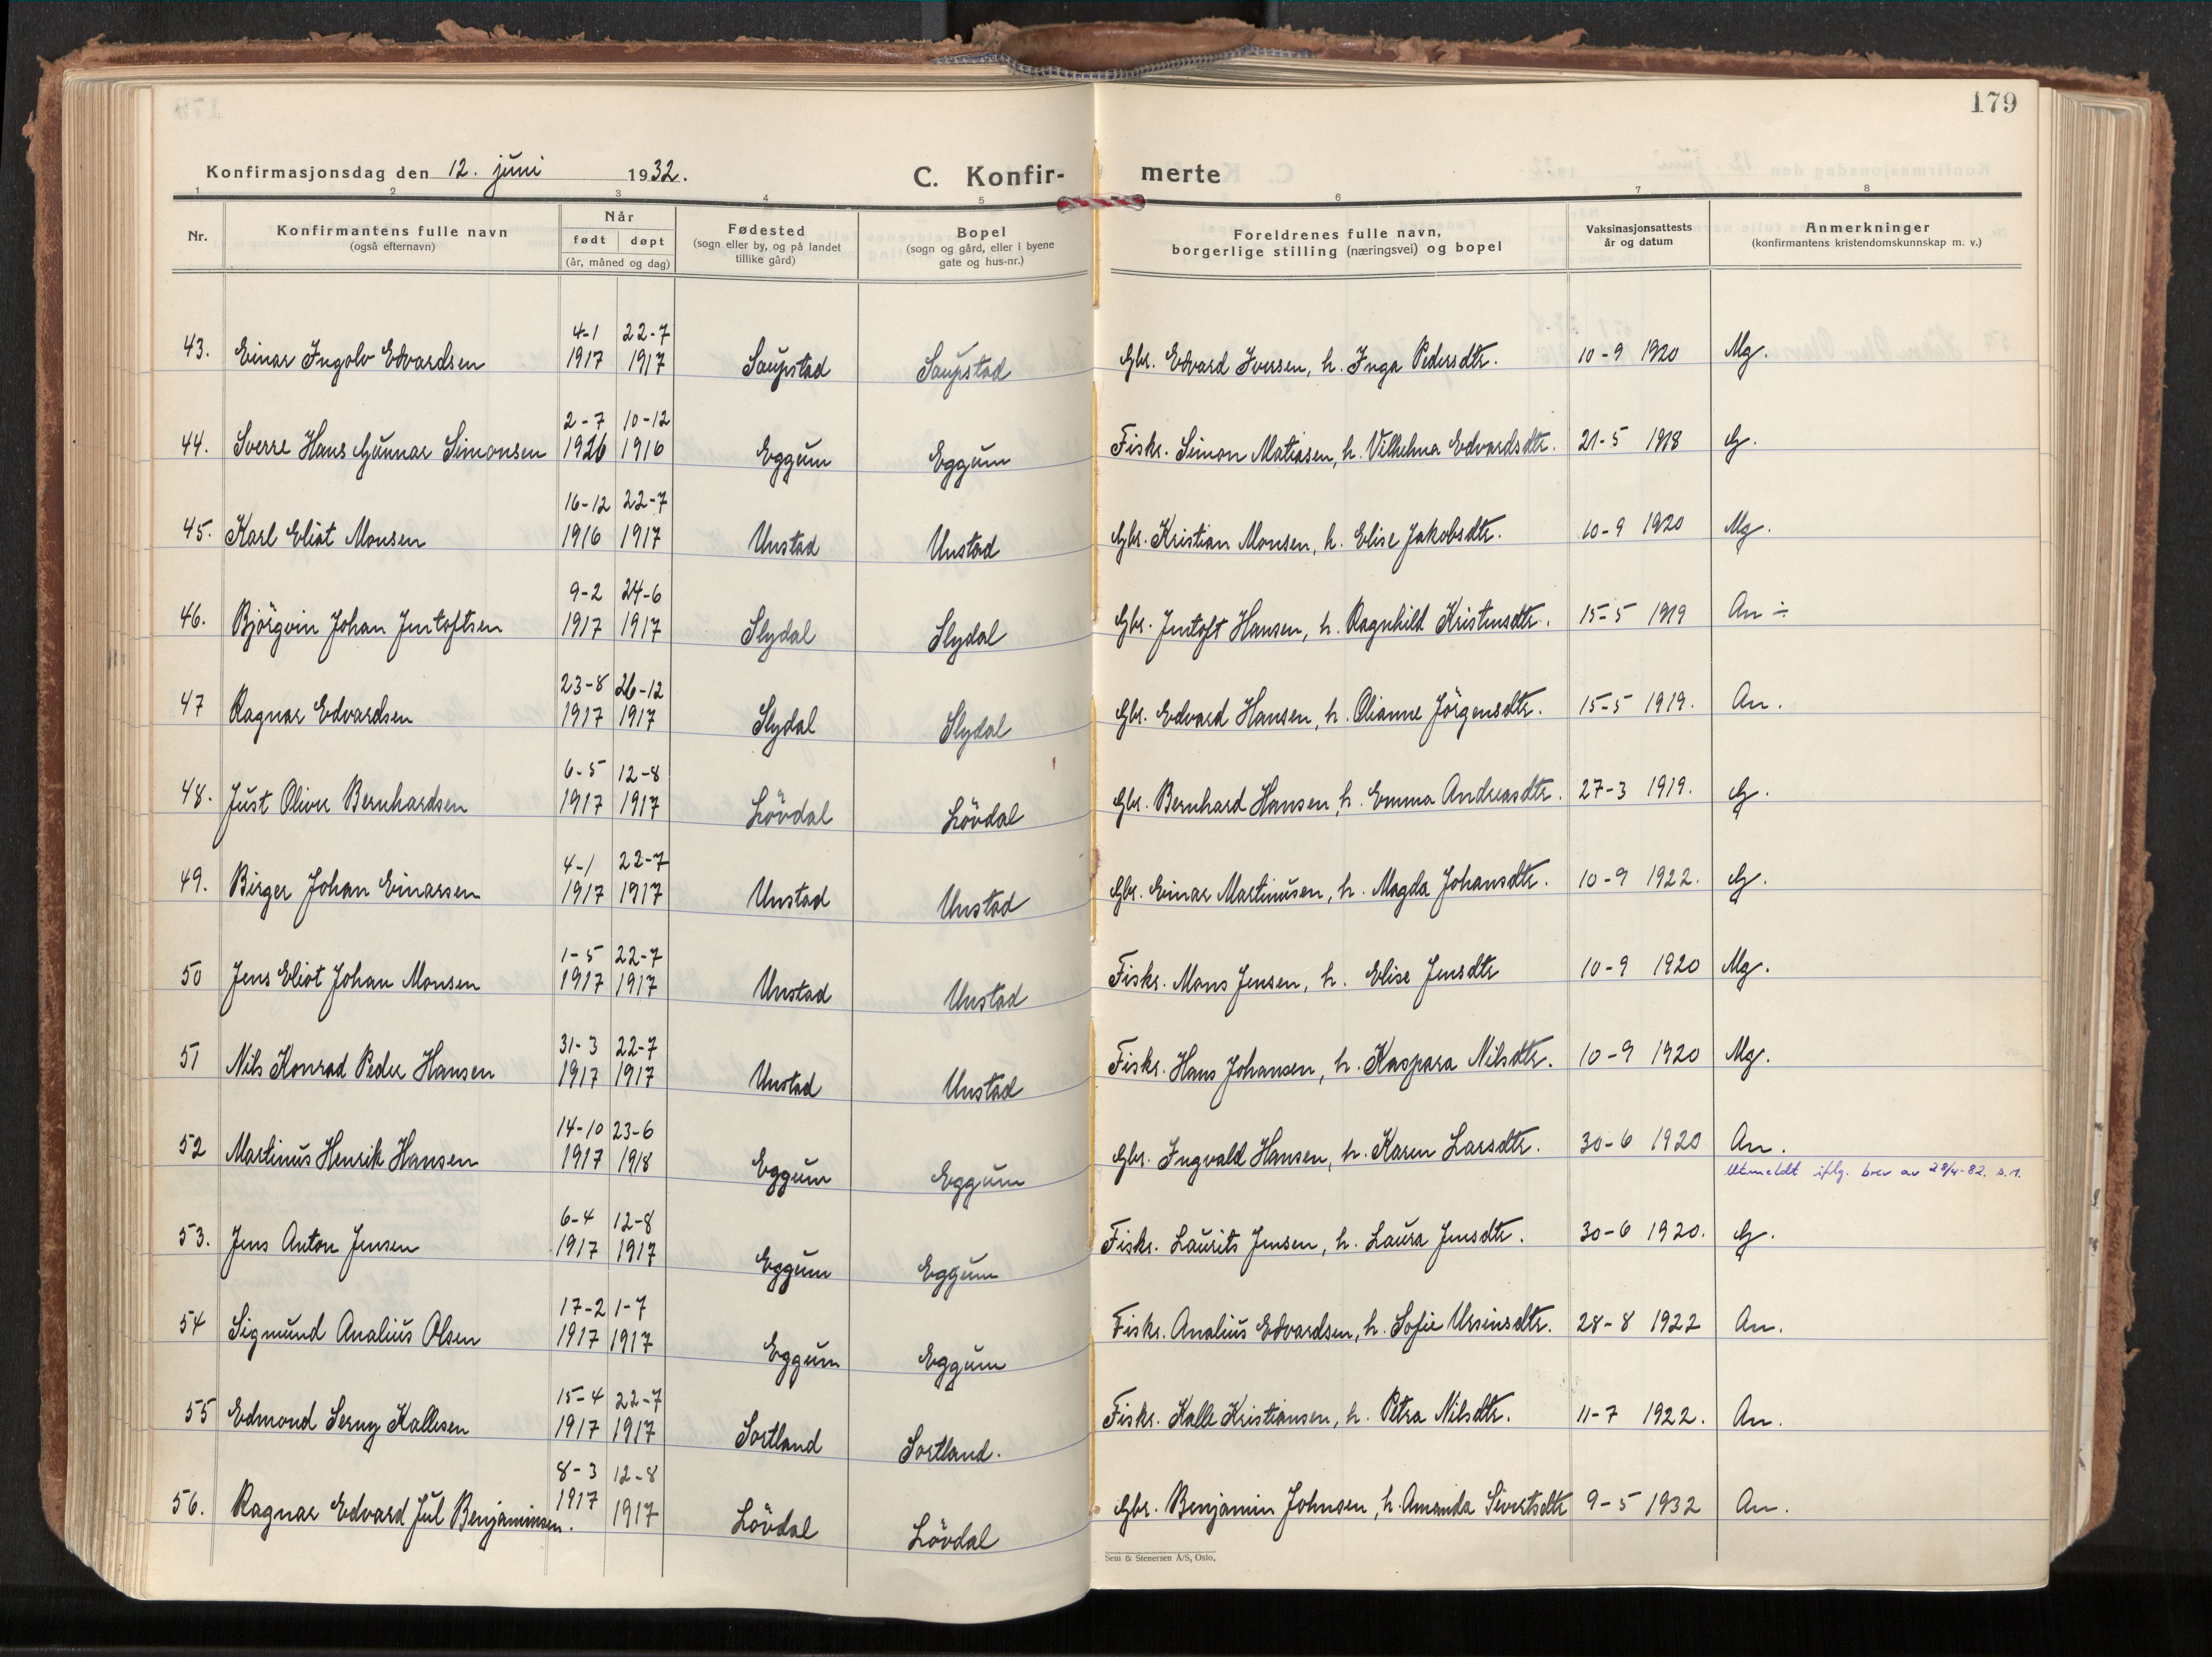 179
Konfirmasjonsdag den 12. juni 1932. C. Konfir- merte
1 2 3 4 5 6 7 8
Nr. Konfirmantens fulle navn (også efternavn) Når født døpt (år, måned og dag) Fødested (sogn eller by, og på landet tillike gård) Bopel (sogn og gård, eller i byene gate og hus-nr.) Foreldrenes fulle navn, borgerlige stilling (næringsvei) og bopel Vaksinasjonsattests år og datum Anmerkninger (konfirmantens kristendomskunnskap m. v.)
4-1 22-7
43. Einar Ingolv Edvardsen 1917 1917 Saupstad Saupstad Gbr. Edvard Iversen, h. Inga Pedersdtr. 10-9 1920 Mg.
2-7 10-12
44. Sverre Hans Gunnar Simonsen 1916 1916 Eggum Eggum Fiskr. Simon Matiasen, h. Vilhelma Edvardsdtr. 21-5 1918 G.
16-12 22-7
45. Karl Eliot Monsen 1916 1917 Unstad Unstad Gbr. Kristian Monsen, h. Elise Jakobsdtr. 10-9 1920 Mg.
9-2 24-6
46. Björgvin Johan Jentoftsen 1917 1917 Slydal Slydal Gbr. Jentoft Hansen, h. Ragnhild Kristensdtr. 15-5 1919 An ÷
23-8 26-12
47 Ragnar Edvardsen 1917 1917 Slydal Slydal Gbr. Edvard Hansen, h. Olianne Jörgensdtr. 15-5 1919. An.
6-5 12-8
48. Just Oliver Bernhardsen 1917 1917 Lövdal Lövdal Gbr. Bernhard Hansen, h. Emma Andreasdtr. 27-3 1919. G.
4-1 22-7
49. Birger Johan Einarsen 1917 1917 Unstad Unstad Gbr. Einar Martinusen, h. Magda Johansdtr. 10-9 1922. G.
1-5 22-7
50 Jens Eliot Johan Monsen 1917 1917 Unstad Unstad Fiskr. Mons Jensen, h. Elise Jensdtr 10-9 1920 Mg.
31-3 22-7
51 Nils Konrad Peder Hansen 1917 1917 Unstad Unstad Fiskr. Hans Johansen, h. Kaspara Nilsdtr. 10-9 1920 Mg.
14-10 23-6
52 Martinus Henrik Hansen 1917 1918 Eggum Eggum Gbr. Ingvald Hansen, h. Karen Larsdtr. 30-6 1920 An.
Utmeldt iflg. brev av 28/4-82.
6-4 12-8
53. Jens Anton Jensen 1917 1917 Eggum Eggum Fiskr. Laurits Jensen, h. Laura Jensdtr. 30-6 1920. G.
17-2 1-7
54 Sigmund Analius Olsen 1917 1917 Eggum Eggum Fiskr. Analius Edvardsen, h. Sofie Ursinsdtr. 28-8 1922 An.
15-4 22-7
55 Edmond Serny Kallesen 1917 1917 Sortland Sortland. Fiskr. Kalle Kristiansen, h. Petra Nilsdtr. 11-7 1922. An.
8-3 12-8
56. Ragnar Edvard Jul Benjaminsen. 1917 1917 Lövdal Lövdal Gbr. Benjamin Johnsen, h. Amanda Sivertsdtr 9-5 1932 An.
Sem & Stenersen A/S, Oslo.